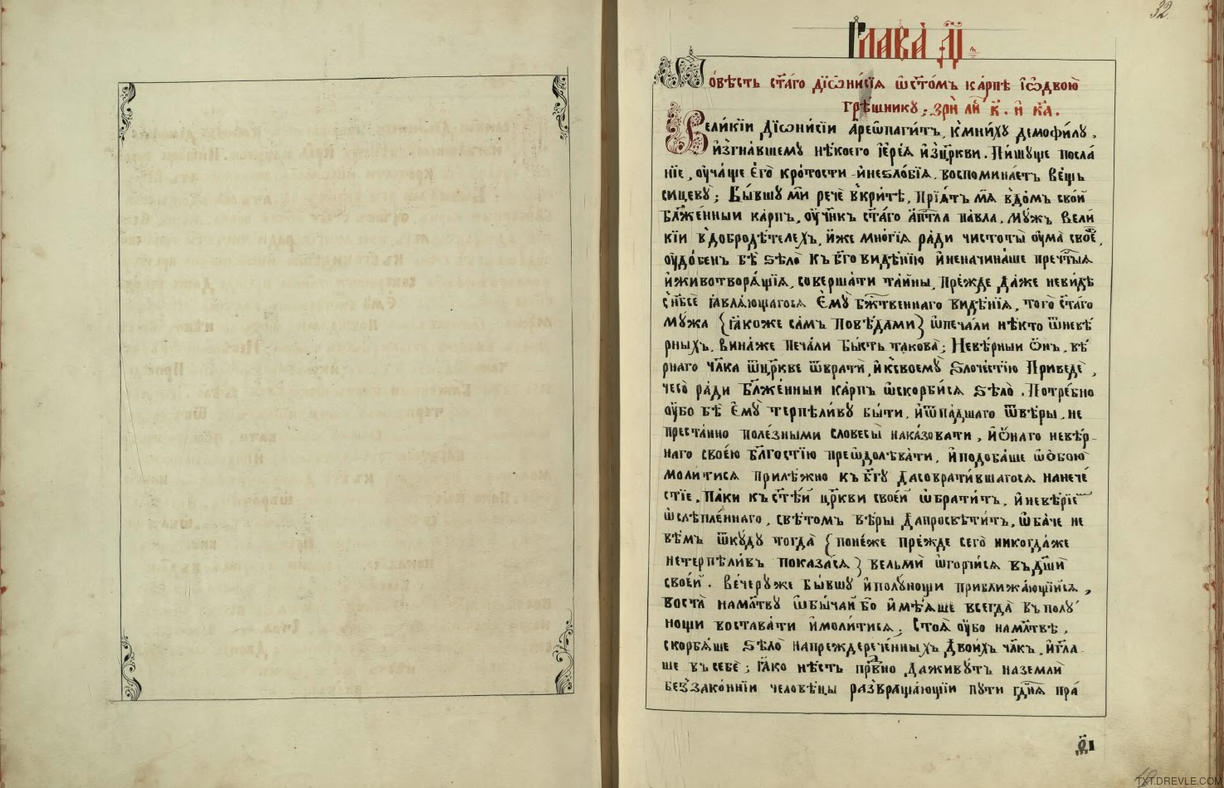 32
Глава д҃і.
Повѣсть ст҃а́го дїѡни́сїа ѡ ст҃о́мъ ка́рпѣ і ѡ двою̀
грѣ́шнику; зри̑ ли҇ к҃. и҆ к҃а.
Вели́кїи Дїѡни́сїи Арео̑паги́тъ, к мни́хꙋ демофи́лꙋ,
и҆згна́вшемꙋ нѣ́коего і҆ере́а и҆зцр҃кви. Пи́шꙋще посла́
нїе, оу҆ча́ше є҆го̀ кро́тости и҆ неѕло́бїѧ. воспомина́етъ ве́щь
сицевꙋ̀; Бы́вшꙋ мѝ речѐ в кри́тѣ, Прїѧ́тъ мѧ̀ в до́мъ сво́й
Бл҃же́нныи ка́рпъ, оу҆ч҃нкъ ст҃а́го а҆п҇тла па́вла. Мꙋ́жъ вели́
кїи в добродѣ́телехъ, и҆́же мно́гїѧ ра́ди чистоты̀ оу҆ма̀ своеⷢ҇,
оу҆до́бенъ бѣ̀ ѕѣлѡ̀ къ Бг҃о видѣ́нїю и҆ не начина́ше преч҇тыѧ
и҆ животворѧ́щїѧ, соверша́ти та́йны, Пре́жде да́же не ви́дѣ
с нб҃сѐ ꙗ҆влѧ́ющагосѧ Є҆мꙋ̀ бж҇твеннаго видѣ́нїѧ, того̀ ст҃а́го
мꙋ́жа {ꙗ҆́коже са́мъ повѣ́дами} ѡ҆печали нѣ́кто ѿ невѣ́
рныхъ. вина́ же печа́ли бы́сть такова̀; Невѣ́рныи ѻ҆́нъ, вѣ́
рнаго чл҃ка ѿ цр҃кве ѿврати́, и҆ к своемꙋ̀ ѕлоче́стїю Приведѐ,
чесо̀ ра́ди Бл҃же́нныи ка́рпъ ѡ҆скорби́сѧ ѕѣлѡ̀. Потре́бно
оу҆́бо бѣ̀ Є҆мꙋ̀ терпѣли́вꙋ бы́ти, и҆ ѿпа́дшаго ѿ вѣ́ры, не
преста́нно поле́зными словесы̀ наказова́ти, и҆ ѻ҆́наго невѣ́р-
наго свое́ю бл҃гостїю преѡ҆долѣва́ти, и҆ подоба́ше ѡ҆ ѻ҆бою̀
моли́тисѧ приле́жно къ Бг҃ꙋ да соврати́вшагосѧ на нече́
стїе, па́ки къ ст҃ѣ́й цр҃кви свое́й ѡ҆брати́тъ, и҆ невѣ́рїеⷨ
ѡ҆слѣпле́ннаго, свѣ́томъ вѣ́ры да просвѣти́тъ, ѡ҆ба́че не
вѣ́мъ ѿкꙋ́дꙋ тогда̀ {поне́же пре́жде сего̀ никогда́же
нетерпѣли́въ показа́сѧ} вельмѝ ѡ҆горчи́сѧ въ дш҃и
свое́й. Ве́черꙋ же бы́вшꙋ и҆ полꙋ́нощи приближа́ющїйсѧ,
воста̀ на мл҃твꙋ ѡ҆бы́чай бо и҆мѣ́ѧше всегда̀ въ полꙋ́
нощи востава́ти и҆ моли́тисѧ; Стоѧ̀ оу҆́бо на мл҃твѣ,
скорбѧ́ше ѕѣлѡ̀ на преждерече́нныхъ двои́хъ чл҃къ, и҆ гл҃а
ше въ себѣ̀; ꙗ҆́ко нѣ́сть пра́вⷣно да живꙋ́тъ на землѝ
беззако́ннїи человѣ́цы развраща́ющїи пꙋти̑ гдн҇ѧ пра́
TXT.DREVLE.COM